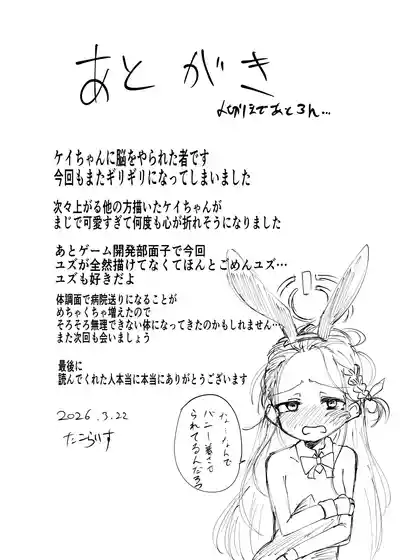 あとがき
ケイちゃんに脳をやられた者です
今回もまたギリギリになってしまいました
次々上がる他の方描いたケイちゃんが
まじで可愛すぎて何度も心が折れそうになりました
あとゲーム開発部面子で今回
ユズが全然描けてなくてほんとごめんユズ…
ユズも好きだよ
体調面で病院送りになることが
めちゃくちゃ増えたので
そろそろ無理できない体になってきたのかもしれません…
また次回も会いましょう
最後に
読んでくれた人本当に本当にありがとうございます
2026.3.22
たこらいす
な…なんで
バニー着させ
られてるんだろ?